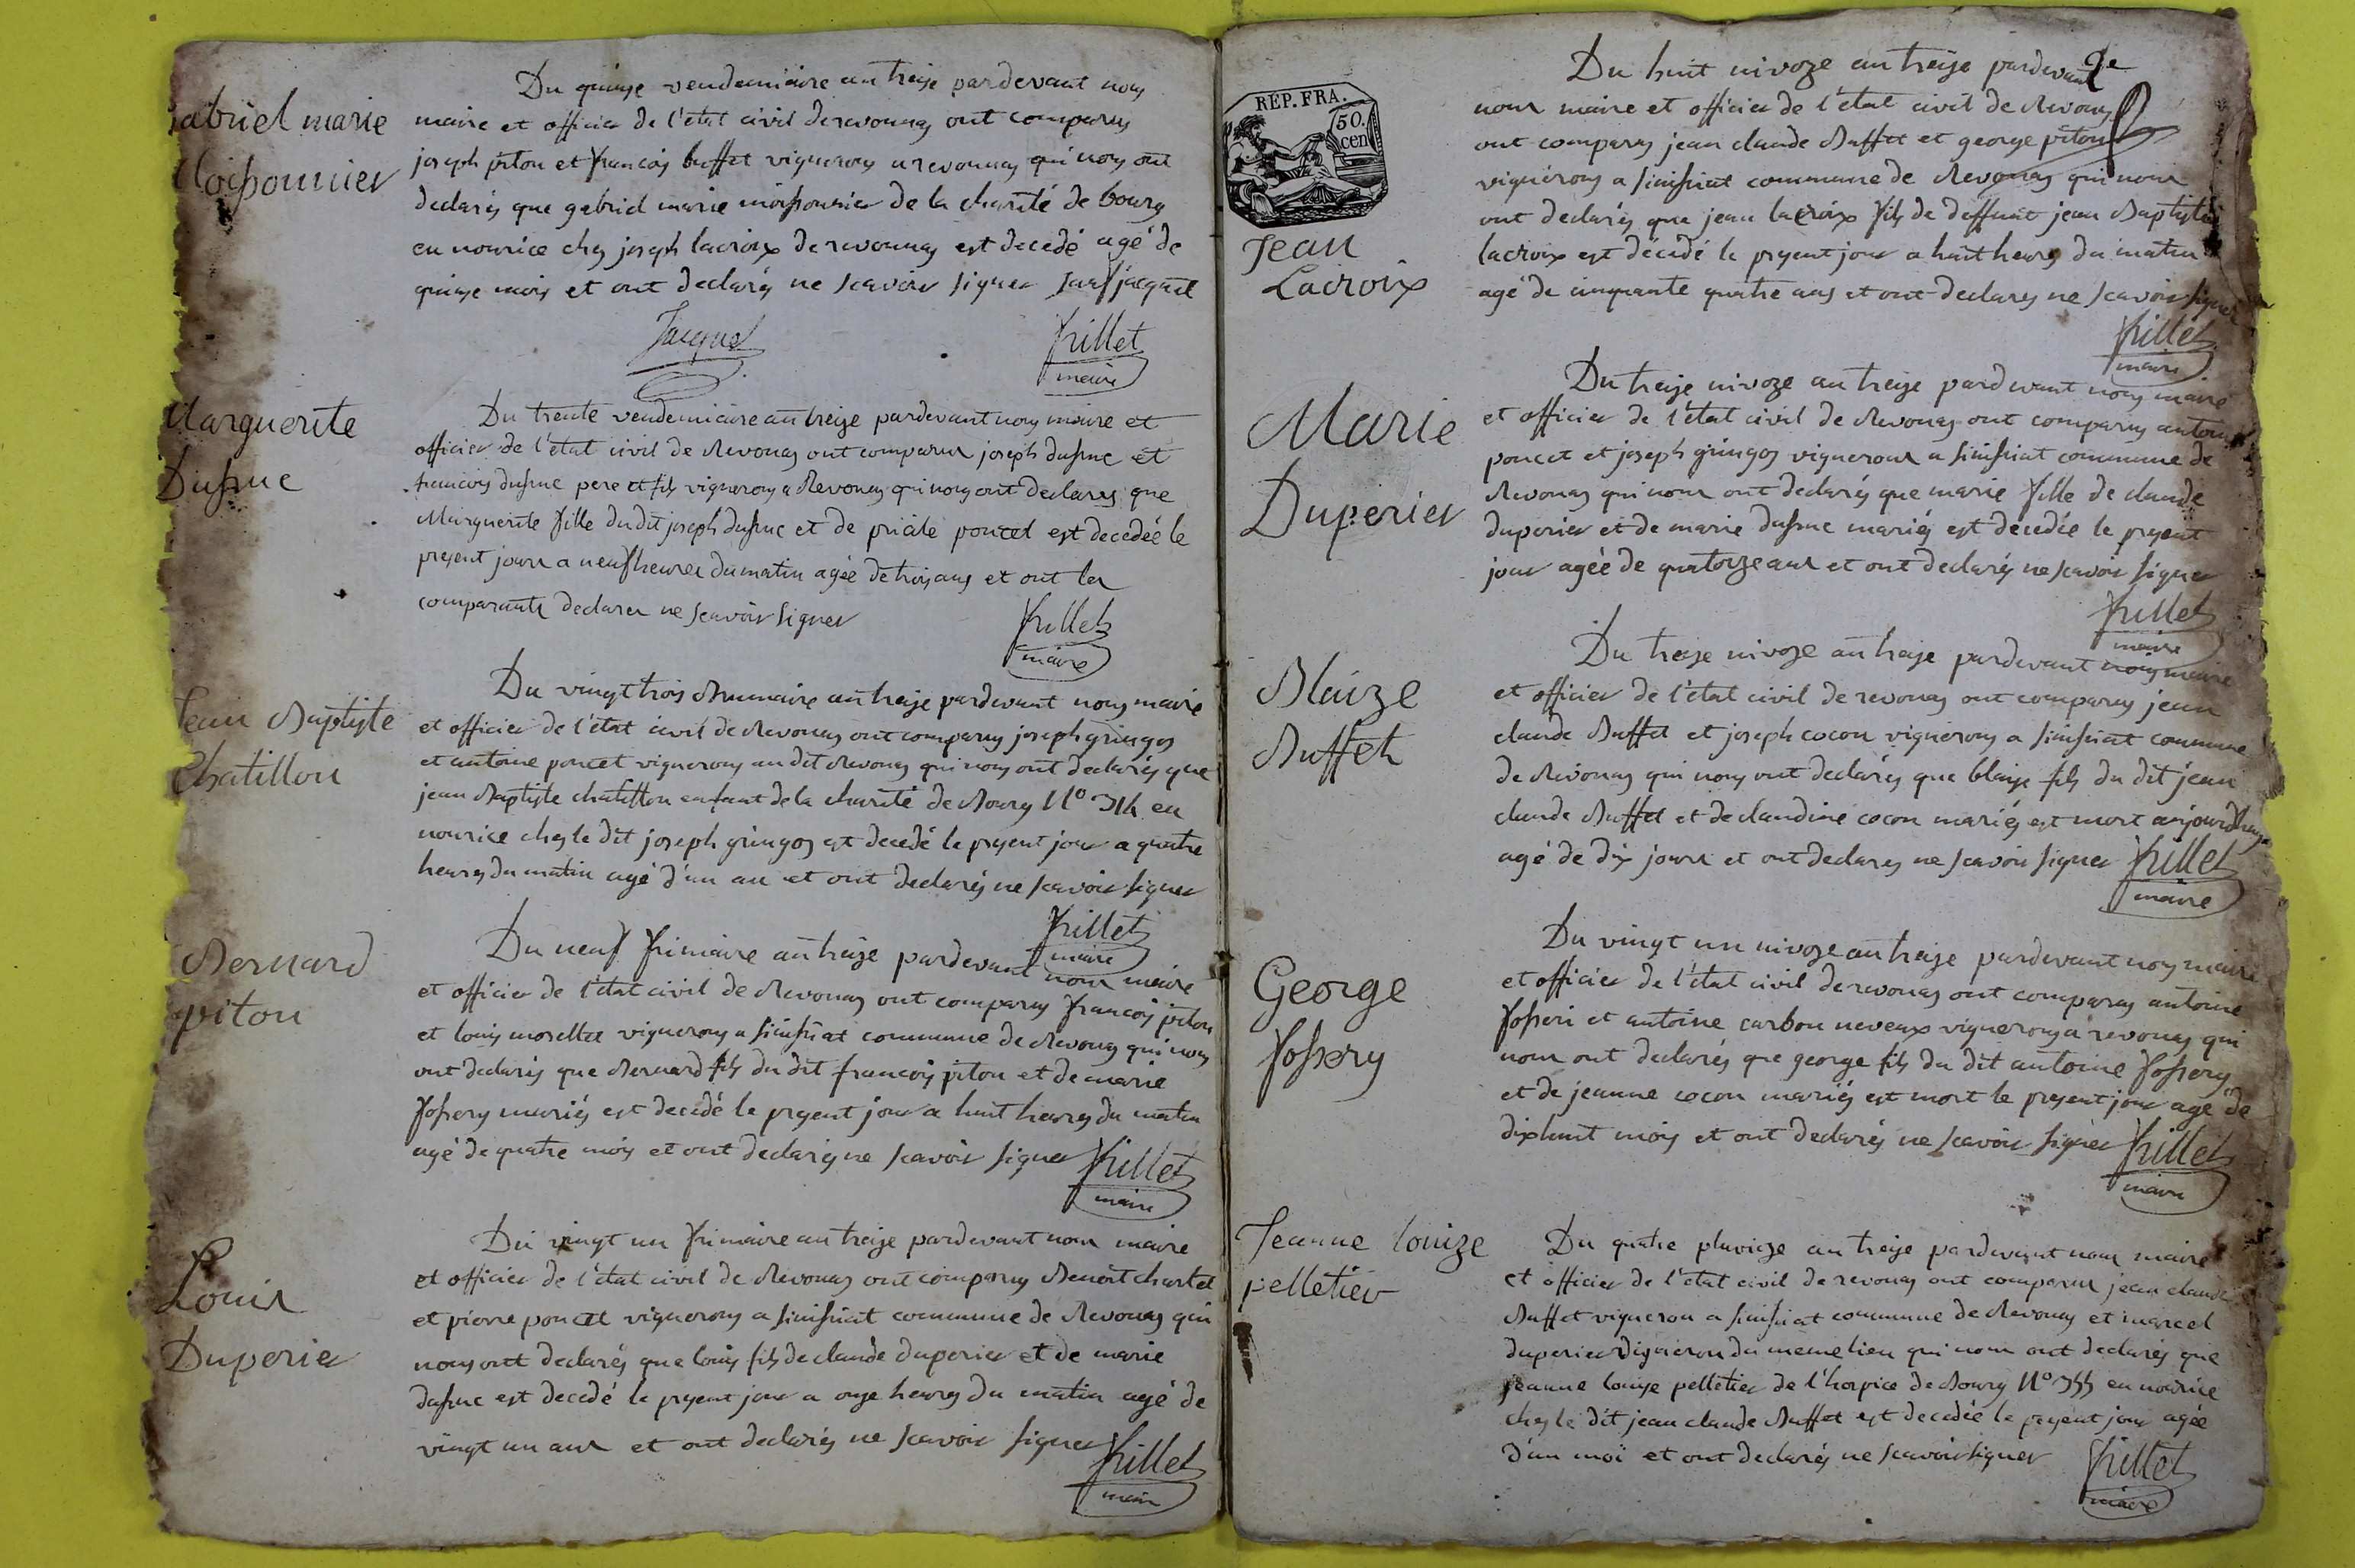 Gabriel marie
Moissonnier
Du quinze vendemiaire an treize pardevant nous
maire et officier de l'état civil de revonnas ont comparus
joseph piton et francois buffet vignerons a revonnas qui nous ont
declarés que gabriel marie moissonnier de la charité de bourg
en nourice chez joseph lacroix de revonnas est decedé agé de
quinze mois et ont declarés ne scavoir signer sauf jacquet
Jacquet
frillet
maire
Marguerite
Dusruc
Du trente vendemiaire an treize pardevant nous maire et
officier de l'état civil de Revonas ont comparus joseph dusruc et
francois dusruc pere et fils vignerons a Revonas qui nous ont declares que
Marguerite fille du dit joseph dusruc et de poncet est decedée le
present jour a neuf heures du matin agée de trois ans et ont les
comparants declarer ne scavoir signer
frillet
maire
Jean Baptiste
Chatillon
Du vingt trois Brumaire an treize pardevant nous maire
et officier de l'état civil de Revonas ont comparus joseph gringoz
et antoine poncet vignerons au dit Revonas qui nous ont declarés que
jean Baptiste chatillon enfant de la charité de Bourg N° 314 en
nourice chez le dit joseph gringoz est decedé le present jour a quatre
heures du matin agé d'un an et ont declarés ne scavoir signer
frillet
maire
Bernard
piton
Du neuf frimaire an treize pardevant nous maire
et officier de l'état civil de Revonas ont comparus francois piton
et louis morellet vignerons a simsiat commune de Revonas qui nous
ont declarés que Bernard fils du dit francois piton et de marie
fossery mariés est decedé le present jour a huit heures du matin
agé de quatre mois et ont declarés ne scavoir signer
frillet
maire
Louis
Duperier
Du vingt un frimaire an treize pardevant nous maire
et officier de l'état civil de Revonas ont comparus Benoit chartel
et pierre poncet vignerons a simsiat commune de Revonas qui
nous ont declarés que louis fils de claude duperier et de marie
dusruc est decedé le present jour a onze heures du matin agé de
vingt un ans et ont declarés ne scavoir signer
frillet
maire
2e
REP. FRA.
50.
cen
Jean
Lacroix
Du huit nivoze an treize pardevant
nous maire et officier de l'état civil de Revonas
ont comparus jean claude Buffet et george piton
vignerons a simsiat commune de Revonas qui nous
ont declarés que jean lacroix fils de deffunt jean Baptiste
lacroix est décédé le present jour a huit heures du matin
agé de cinquante quatre ans et ont declarés ne scavoir signer
frillet
maire
Marie
Duperier
Du treize nivoze an treize pardevant nous maire
et officier de l'état civil de Revonas ont comparus antoine
poncet et joseph gringoz vignerons a simsiat commune de
Revonas qui nous ont declarés que marie fille de claude
duperier et de marie dusruc mariés est decedée le present
jour agée de quatorze ans et ont declarés ne scavoir signer
frillet
maire
Blaize
Buffet
Du treize nivoze an treize pardevant nous maire
et officier de l'état civil de revonas ont comparus jean
claude Buffet et joseph cocon vignerons a simsiat commune
de Revonas qui nous ont declarés que blaize fils du dit jean
claude Buffet et de claudine cocon mariés est mort aujourdhuy
agé de dix jours et ont declares ne scavoir signer
frillet
maire
George
fossery
Du vingt un nivoze an treize pardevant nous maire
et officier de l'état civil de revonas ont comparus antoine
fosseri et antoine carbon neveux vignerons a revonas qui
nous ont declarés que george fils du dit antoine fossery
et de jeanne cocon mariés est mort le present jour agé de
dixhuit mois et ont declarés ne scavoir signer
frillet
maire
Jeanne louize
pelletier
Du quatre pluvioze an treize pardevant nous maire
et officier de l'etat civil de revonas ont comparus jean claude
Buffet vigneron a simsiat commune de Revonas et marcel
duperier vigneron du meme lieu qui nous ont declarés que
jeanne louize pelletier de l'hospice de Bourg N° 355 en nourice
chez le dit jean claude Buffet est decedée le present jour agée
d'un moi et ont declarés ne scavoir signer
frillet
maire